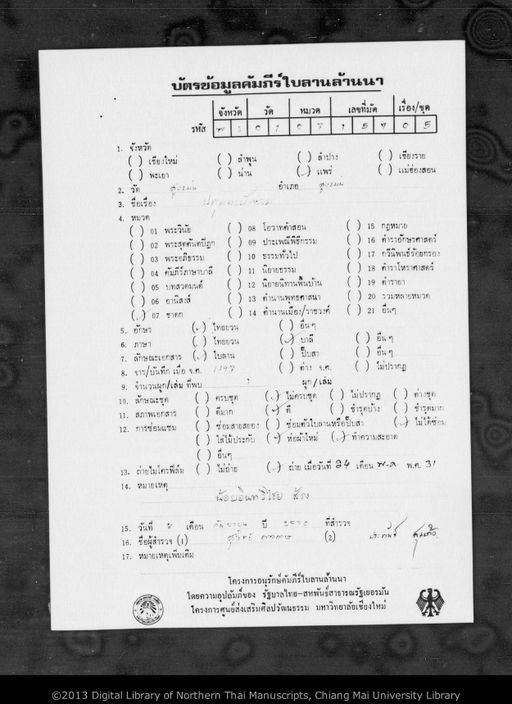 บัตรข้อมูลคัมภีร์ใบลานล้านนา
จังหวัด วัด หมวด เลขที่มัด เรื่อง/ชุด
รหัส 0 1 0 7 1 5 7 0 5
1. จังหวัด
( ) เชียงใหม่ ( ) ลำพูน ( ) ลำปาง ( ) เชียงราย
( ) พะเยา ( ) น่าน (✓) แพร่ ( ) แม่ฮ่องสอน
2. วัด สูงเม่น อำเภอ สูงเม่น
3. ชื่อเรื่อง
4. หมวด
( ) 01 พระวินัย ( ) 08 โอวาทคำสอน ( ) 15 กฎหมาย
( ) 02 พระสุตตันตปิฎก ( ) 09 ประเพณีพิธีกรรม ( ) 16 ตำราอักษรศาสตร์
( ) 03 พระอภิธรรม ( ) 10 ธรรมทั่วไป ( ) 17 กวีนิพนธ์ร้อยกรอง
( ) 04 คัมภีร์ภาษาบาลี ( ) 11 นิยายธรรม ( ) 18 ตำราโหราศาสตร์
( ) 05 บทสวดมนต์ ( ) 12 นิยายนิทานพื้นบ้าน ( ) 19 ตำรายา
( ) 06 อานิสงส์ ( ) 13 ตำนานพุทธศาสนา ( ) 20 รวมหลายหมวด
(✓) 07 ชาดก ( ) 14 ตำนานเมือง/ราชวงศ์ ( ) 21 อื่นๆ
5. อักษร (✓) ไทยยวน ( ) อื่นๆ
6. ภาษา ( ) ไทยยวน (✓) บาลี ( ) อื่นๆ
7. ลักษณะเอกสาร (✓) ใบลาน ( ) ปั๊บสา ( ) อื่นๆ
8. จาร/บันทึก เมื่อ จ.ศ. 1197 ( ) ค่าว จ.ศ. ( ) ไม่ปรากฏ
9. จำนวนผูก/เล่ม ที่พบ ผูก/เล่ม
10. ลักษณะชุด ( ) ครบชุด (✓) ไม่ครบชุด ( ) ไม่ปรากฏ ( ) ต่างชุด
11. สภาพเอกสาร ( ) ดีมาก (✓) ดี ( ) ชำรุดบ้าง ( ) ชำรุดมาก
12. การซ่อมแซม ( ) ซ่อมสายสยอง ( ) ซ่อมตัวใบลานหรือปั๊บสา (✓) ไม่ได้ซ่อม
( ) ใส่ไม้ประกับ (✓) ห่อผ้าใหม่ (✓) ทำความสะอาด
( ) อื่นๆ
13. ถ่ายไมโครฟิล์ม ( ) ไม่ถ่าย (✓) ถ่าย เมื่อวันที่ 24 เดือน พ.ค. พ.ศ. 31
14. หมายเหตุ
15. วันที่ เดือน ปี ที่สำรวจ
16. ชื่อผู้สำรวจ (1) (2)
17. หมายเหตุเพิ่มเติม
โครงการอนุรักษ์คัมภีร์ใบลานล้านนา
โดยความอุปถัมภ์ของ รัฐบาลไทย-สหพันธ์สาธารณรัฐเยอรมัน
โครงการศูนย์ส่งเสริมศิลปวัฒนธรรม มหาวิทยาลัยเชียงใหม่
©2013 Digital Library of Northern Thai Manuscripts, Chiang Mai University Library